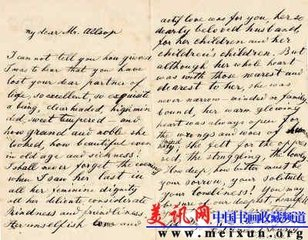 My dear Mr. Allsop
I can not tell you how grieved
I was to hear that you have
lost your dear partner of
life, so excellent, so exquisite
a being, clear headed, high min
ded, sweet tempered - and
how grand and noble she
looked, how beautiful even
in old age and sickness!
I shall never forget the
when I saw her last in
all her feminine dignity
and delicate considerate
kindness and friendliness.
Her unselfish love and
love was for you, her
dearly beloved husband
for her children and her
children's children. But
although her whole heart
was with those nearest and
dearest to her, she was
never narrow-minded or family
bound, her warm glowing
heart was always open for
the wrongs and woes of
she felt for the
the struggling, the
How deep, how bitter must be
your sorrow, your solitude
your loneliness! You may
be sure of our deepest heartfelt
美讯网
中国书画收藏频道
www.meixun.org